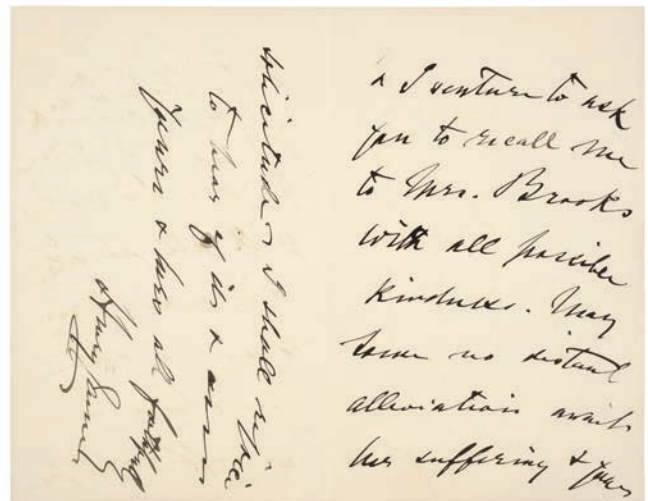 & I venture to ask
you to recall me
to Mrs. Brooks
with all possible
kindness. May
some no distant
alleviation await
her suffering & your
solicitude & I shall rejoice
to hear of it &
Yours & hers all faithfully
Henry James